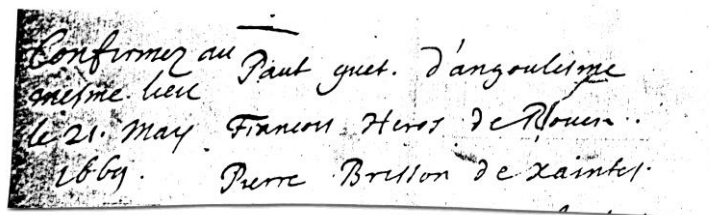 Confirmez au
mesme lieu
le 21. May
1669.
Paul guet. d'angoulesme
Francois Heros de Rouen..
Pierre Brisson de xaintes.